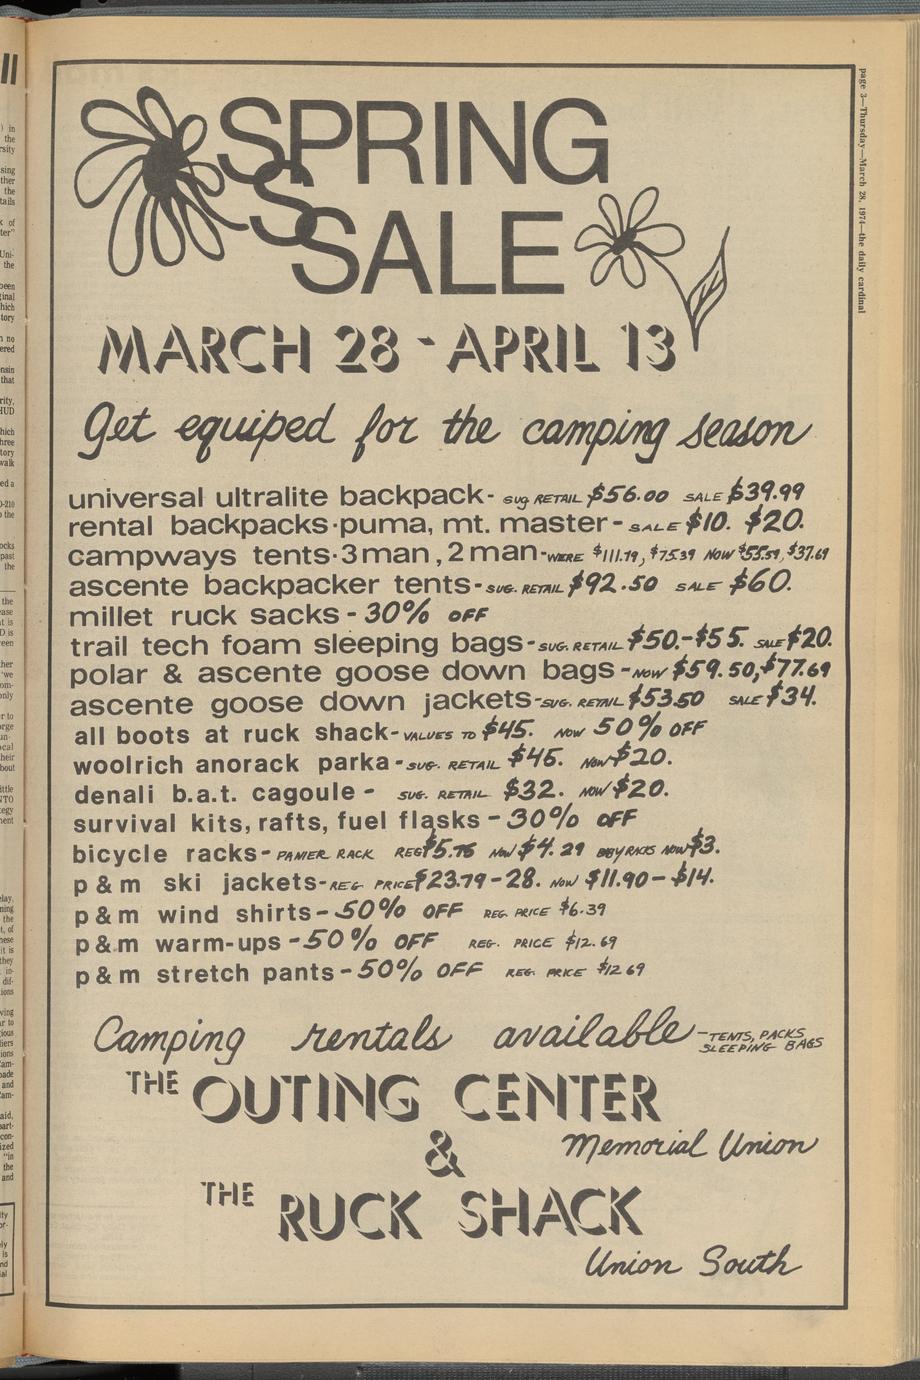 SPRING
S
SALE
MARCH 28 - APRIL 13
Get equiped for the camping season
universal ultralite backpack - sug RETAIL $56.00 SALE $39.99
rental backpacks·puma, mt. master - SALE $10. $20.
campways tents·3 man, 2 man - WERE $111.79, $75.39 NOW $55.59, $37.69
ascente backpacker tents - SUG. RETAIL $92.50 SALE $60.
millet ruck sacks - 30% OFF
trail tech foam sleeping bags - SUG. RETAIL $50.-$55. SALE $20.
polar & ascente goose down bags - NOW $59.50, $77.69
ascente goose down jackets - SUG. RETAIL $53.50 SALE $34.
all boots at ruck shack - VALUES TO $45. NOW 50% OFF
woolrich anorack parka - SUG. RETAIL $45. NOW $20.
denali b.a.t. cagoule - SUG. RETAIL $32. NOW $20.
survival kits, rafts, fuel flasks - 30% OFF
bicycle racks - PANIER RACK REG $5.75 NOW $4.29 BABY RACKS NOW $3.
p & m ski jackets - REG PRICE $23.79 - 28. NOW $11.90 - $14.
p & m wind shirts - 50% OFF REG. PRICE $6.39
p & m warm-ups - 50% OFF REG. PRICE $12.69
p & m stretch pants - 50% OFF REG. PRICE $12.69
Camping rentals available - TENTS, PACKS
SLEEPING BAGS
THE OUTING CENTER
Memorial Union
&
THE RUCK SHACK
Union South
page 3—Thursday—March 28, 1974—the daily cardinal